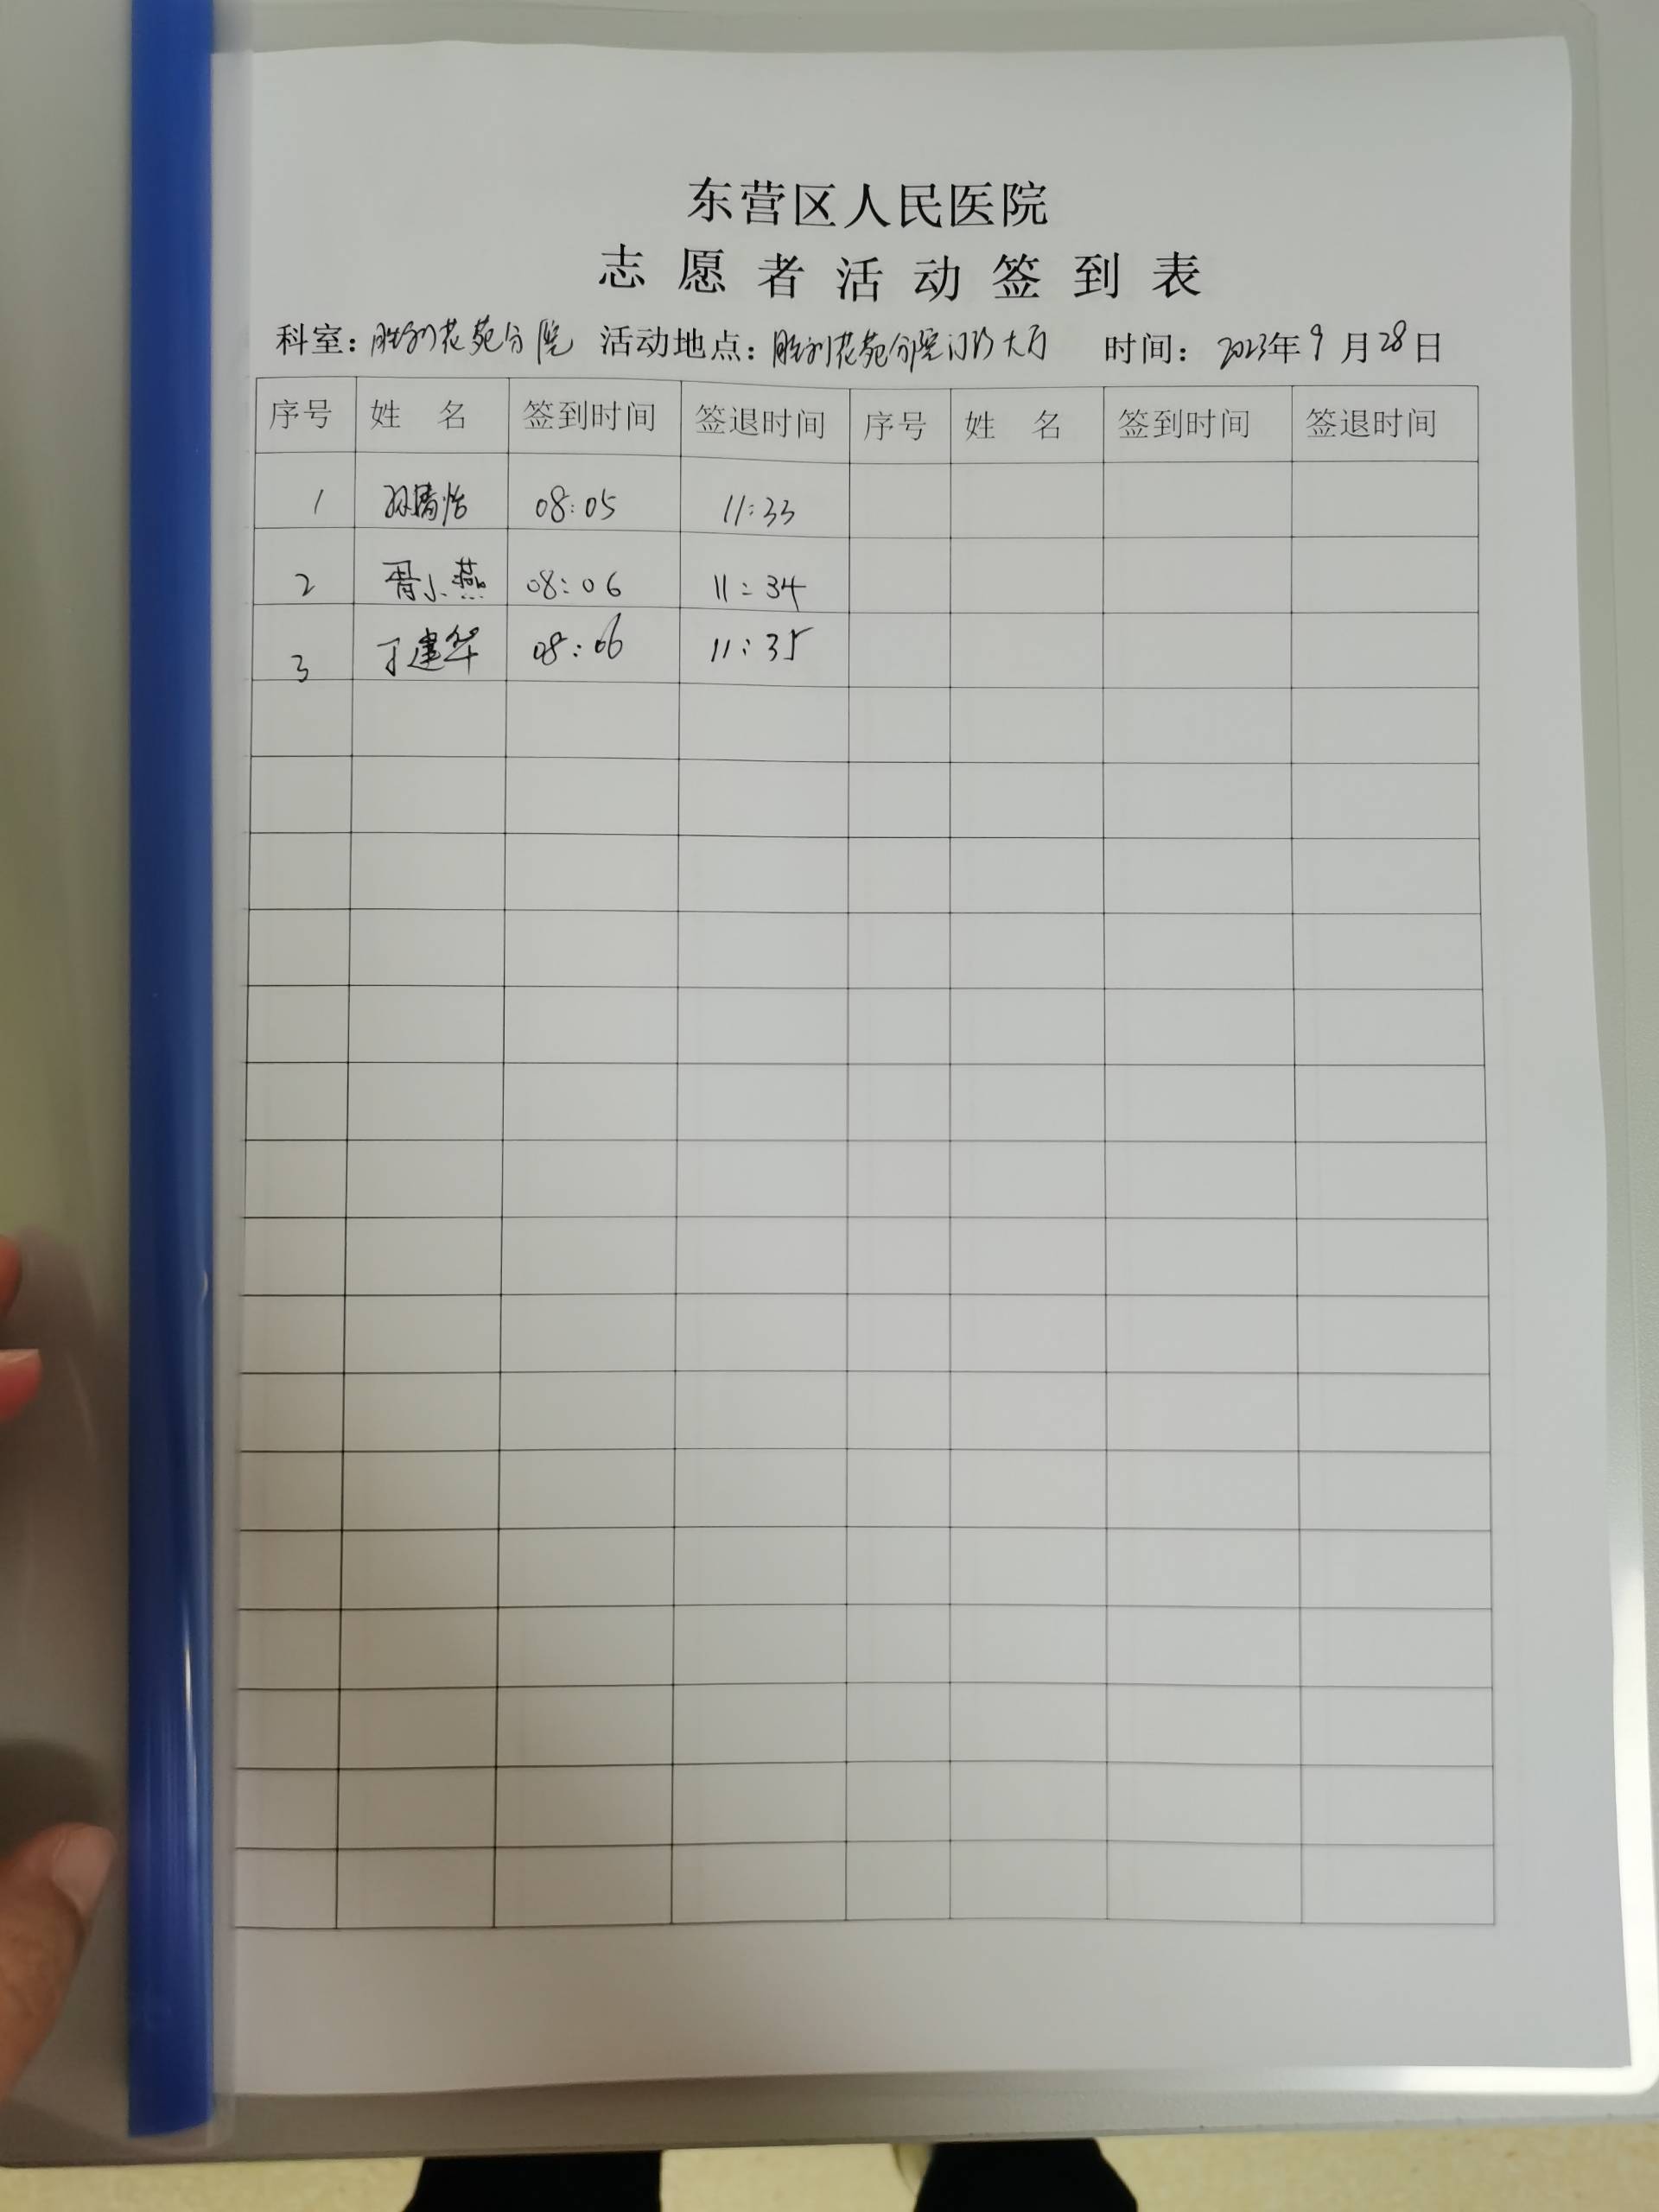 东营区人民医院
志愿者活动签到表
科室：胜利花苑分院 活动地点：胜利花苑分院门诊大厅 时间：2023年9月28日
序号 姓名 签到时间 签退时间 序号 姓名 签到时间 签退时间
1 08:05 11:33
2 胥小燕 08:06 11:34
3 丁建华 08:06 11:35